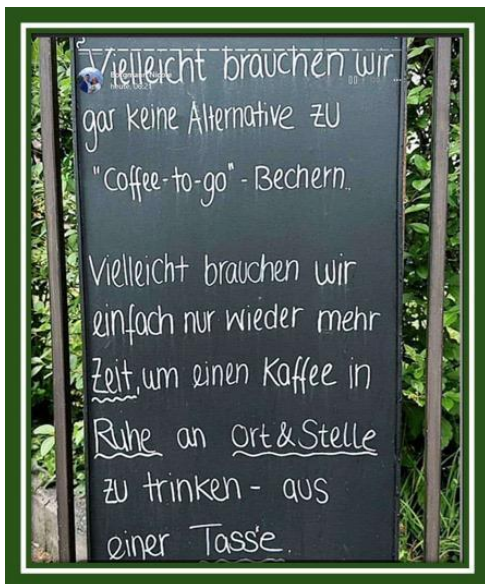 Vielleicht brauchen wir
heute, 00:21
gar keine Alternative zu
"Coffee-to-go"-Bechern.
Vielleicht brauchen wir
einfach nur wieder mehr
Zeit, um einen Kaffee in
Ruhe an Ort & Stelle
zu trinken - aus
einer Tasse.